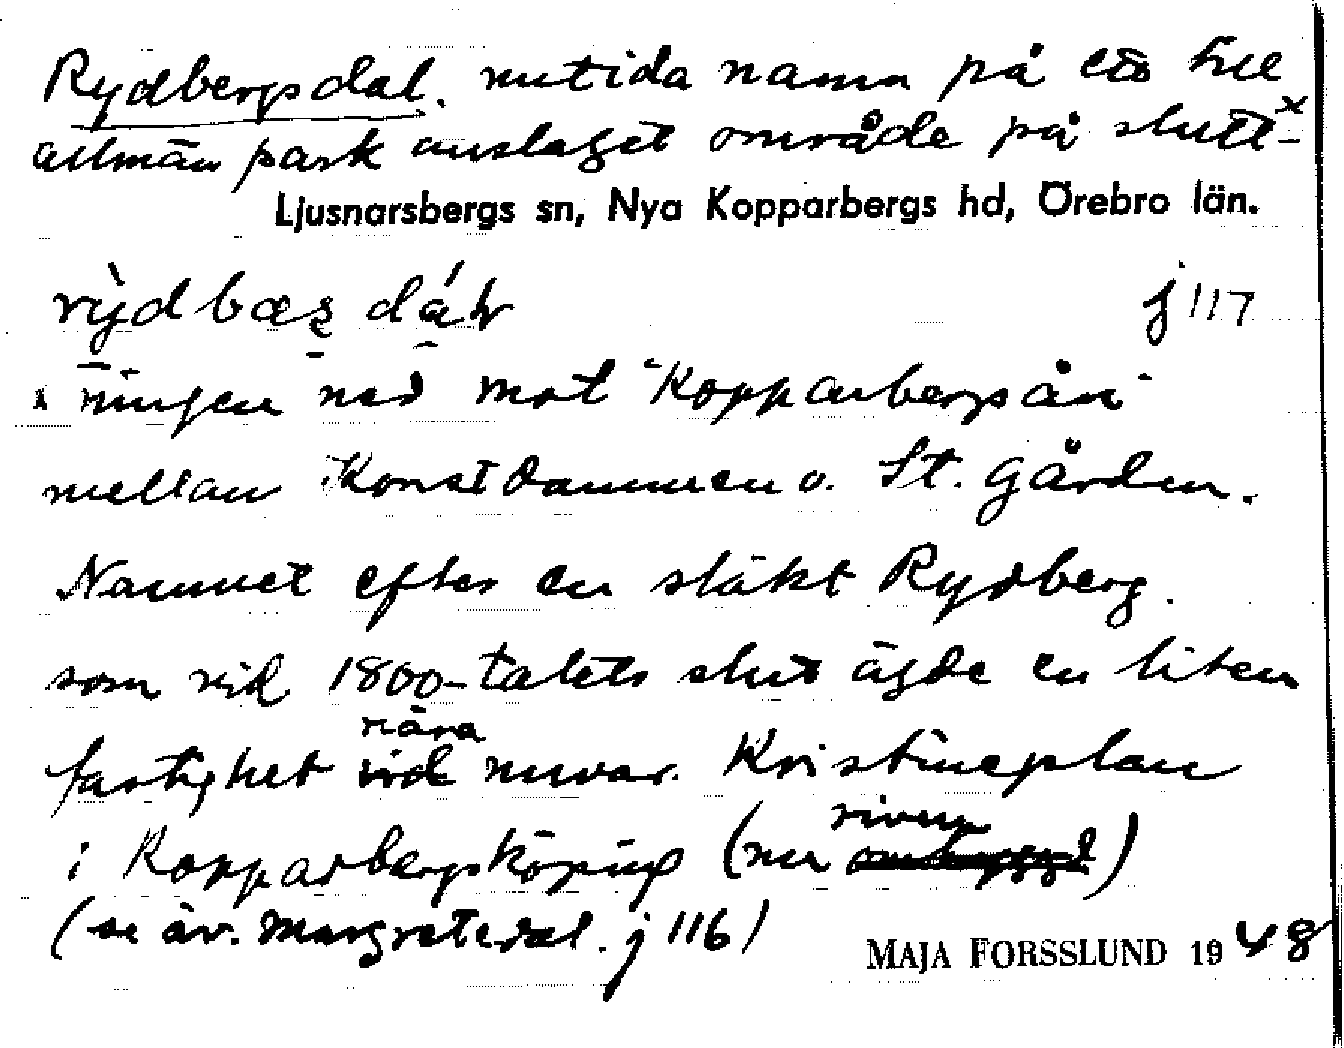 Rydbergsdal. nutida namn på ett till
allmän park anslaget område på slutt-x
Ljusnarsbergs sn, Nya Kopparbergs hd, Örebro län.
rỳdbæş dál j 117
x ningen ned mot "Kopparbergsån"
mellan Konstdammen o. St. gården.
Namnet efter en släkt Rydberg.
som vid 1800-talets slut ägde en liten
nära
fastighet vid nuvar. Kristineplan
riven
i Kopparbergsköping (nu ombyggd)
(se äv. Margretedal. j 116)
MAJA FORSSLUND 1948